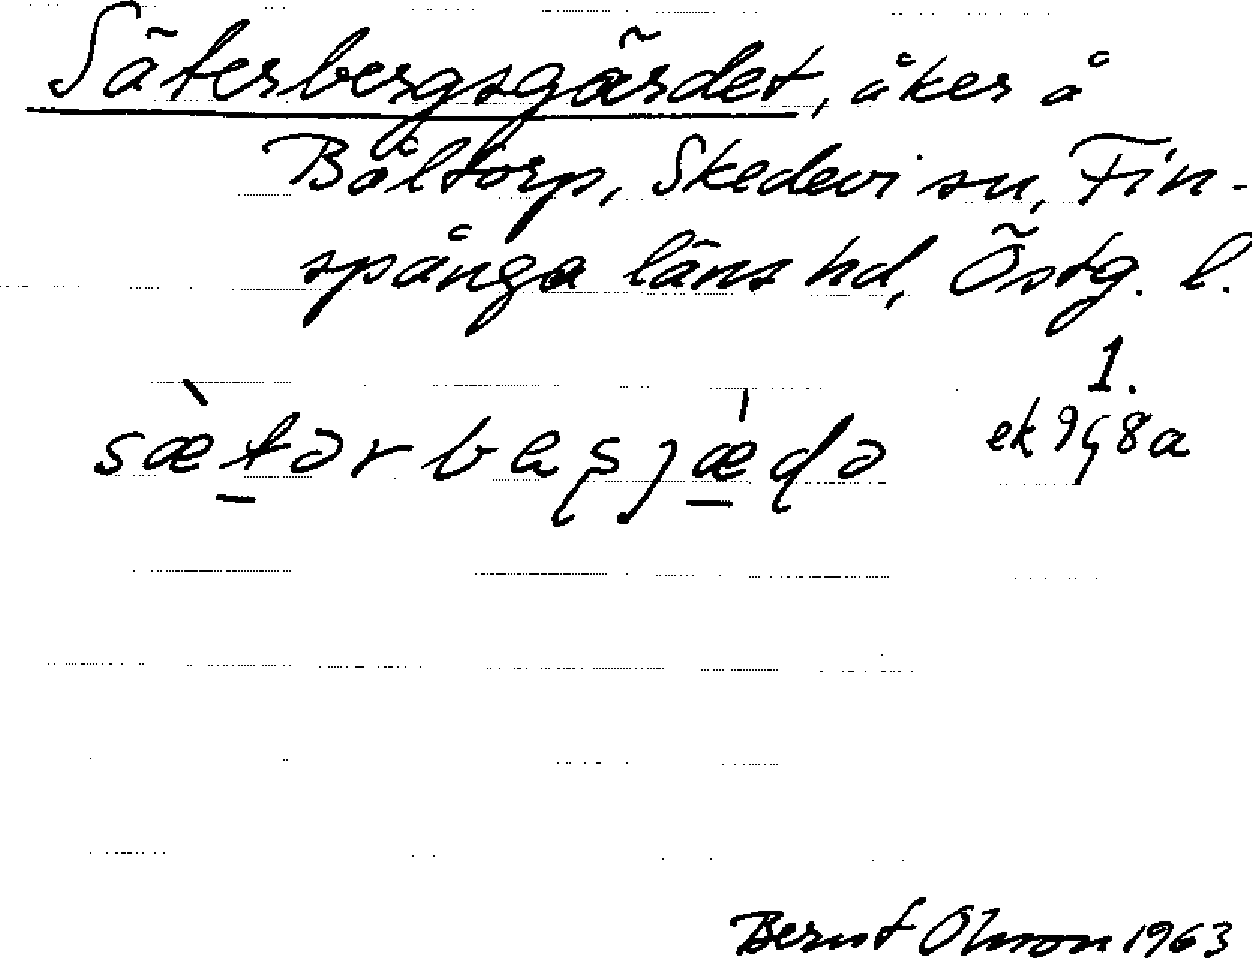 Säterbergsgärdet, åker å
Båltorp, Skedevi sn, Fin-
spånga läns hd, Östg. l.
1.
sæ̀tərbaʂjæ̍ɖə ek 9G8a
Bernt Olsson 1963